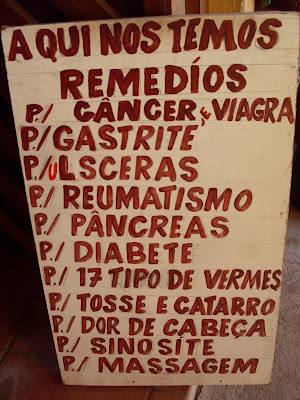 A QUI NOS TEMOS
REMEDÍOS
P./ CÂNCER E VIAGRA
P./ GASTRITE
P./ULSCERAS
P./ REUMATISMO
P./ PÂNCREAS
P./ DIABETE
P./ 17 TIPO DE VERMES
P./ TOSSE E CATARRO
P./ DOR DE CABEÇA
P./ SINOSITE
P./ MASSAGEM